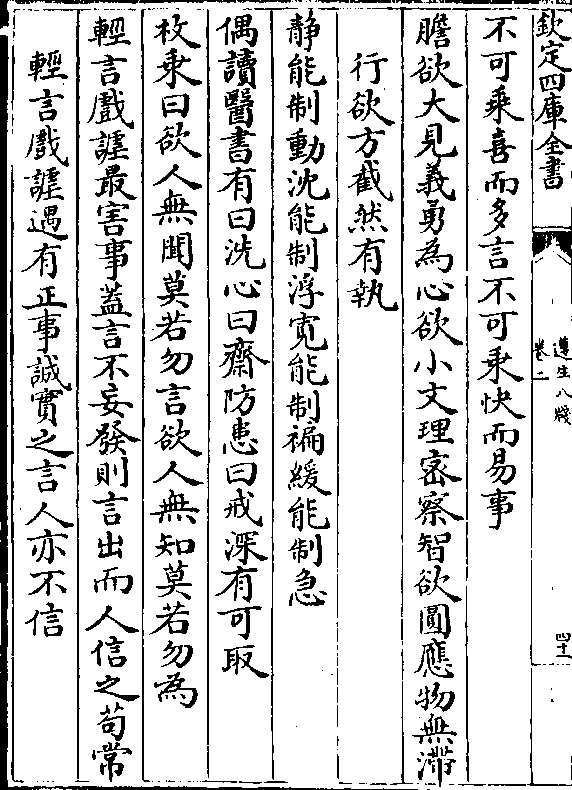 欽定四庫全書
遵生八牋
卷二
四十一
不可乘喜而多言不可乘快而易事
膽欲大見義勇為心欲小文理密察智欲圓應物無滯
行欲方截然有執
靜能制動沈能制浮寬能制褊緩能制急
偶讀醫書有曰洗心曰齋防患曰戒深有可取
枚乘曰欲人無聞莫若勿言欲人無知莫若勿為
輕言戲謔最害事蓋言不妄發則言出而人信之苟常
輕言戲謔遇有正事誠實之言人亦不信